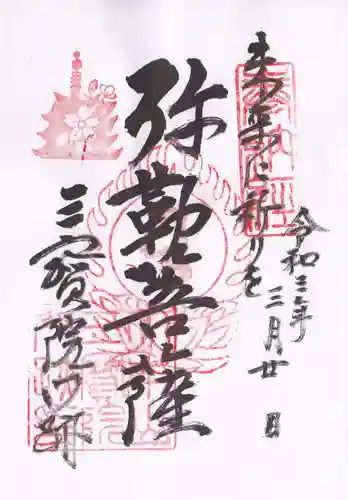 未来に祈りを
令和三年
三月廿日
弥勒菩薩
三宝院門跡